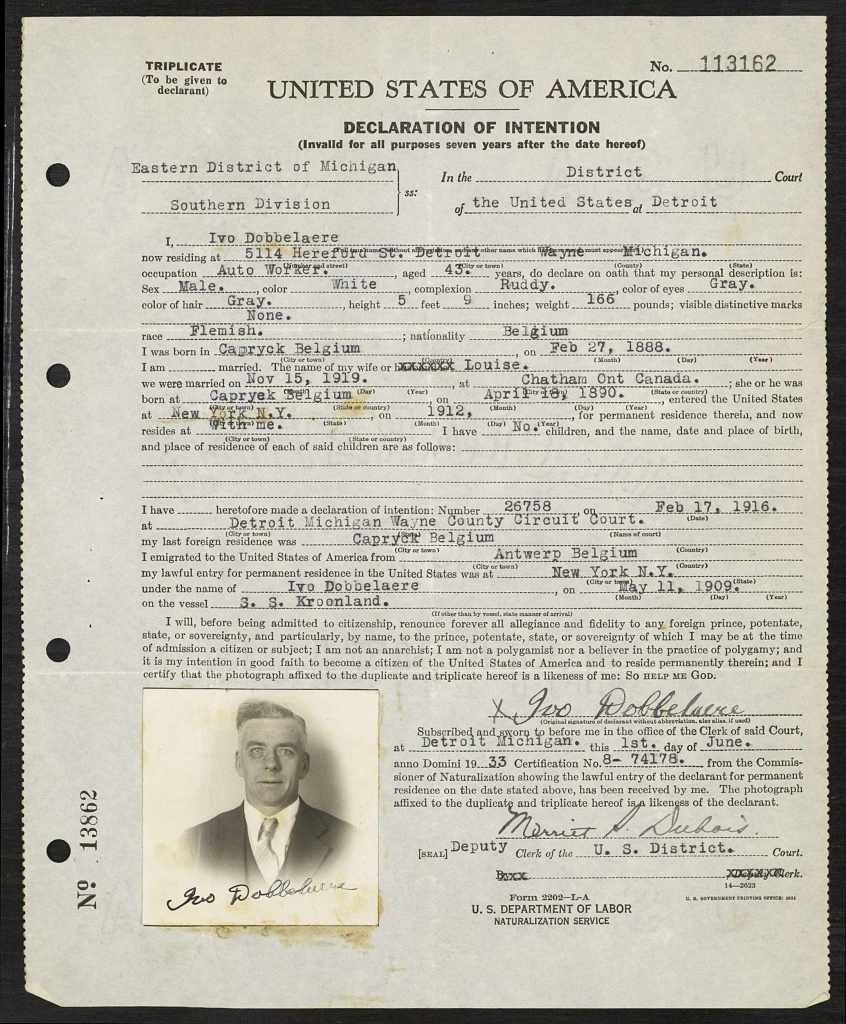 TRIPLICATE
(To be given to
declarant)
No. 113162
UNITED STATES OF AMERICA
DECLARATION OF INTENTION
(Invalid for all purposes seven years after the date hereof)
Eastern District of Michigan
Southern Division
ss:
In the District Court
of the United States at Detroit
I, Ivo Dobbelaere
now residing at 5114 Hereford St. Detroit Wayne Michigan.
(Number and street) (City or town) (County) (State)
occupation Auto Worker. , aged 43. years, do declare on oath that my personal description is:
Sex Male. , color White , complexion Ruddy. , color of eyes Gray.
color of hair Gray. , height 5 feet 9 inches; weight 166 pounds; visible distinctive marks
None.
race Flemish. ; nationality Belgium
I was born in Capryck Belgium , on Feb 27, 1888.
(City or town) (Country) (Month) (Day) (Year)
I am married. The name of my wife or Louise.
we were married on Nov 15, 1919. , at Chatham Ont Canada. ; she or he was
(Month) (Day) (Year) (City or town) (State or country)
born at Capryek Belgium , on April 18, 1890. , entered the United States
(City or town) (State or country) (Month) (Day) (Year)
at New York N.Y. , on 1912, , for permanent residence therein, and now
(City or town) (State) (Month) (Day) (Year)
resides at With me. I have No. children, and the name, date and place of birth,
(City or town) (State or country)
and place of residence of each of said children are as follows:
I have heretofore made a declaration of intention: Number 26758 , on Feb 17, 1916.
(Date)
at Detroit Michigan Wayne County Circuit Court.
(City or town) (Name of court)
my last foreign residence was Capryck Belgium
(City or town) (Country)
I emigrated to the United States of America from Antwerp Belgium
(City or town) (Country)
my lawful entry for permanent residence in the United States was at New York N.Y.
(City or town) (State)
under the name of Ivo Dobbelaere , on May 11, 1909.
(Month) (Day) (Year)
on the vessel S. S. Kroonland.
(If other than by vessel, state manner of arrival)
I will, before being admitted to citizenship, renounce forever all allegiance and fidelity to any foreign prince, potentate,
state, or sovereignty, and particularly, by name, to the prince, potentate, state, or sovereignty of which I may be at the time
of admission a citizen or subject; I am not an anarchist; I am not a polygamist nor a believer in the practice of polygamy; and
it is my intention in good faith to become a citizen of the United States of America and to reside permanently therein; and I
certify that the photograph affixed to the duplicate and triplicate hereof is a likeness of me: SO HELP ME GOD.
X Ivo Dobbelaere
(Original signature of declarant without abbreviation, also alias, if used)
Subscribed and sworn to before me in the office of the Clerk of said Court,
at Detroit Michigan. this 1st. day of June.
anno Domini 19 33 Certification No. 8- 74178. from the Commis-
sioner of Naturalization showing the lawful entry of the declarant for permanent
residence on the date stated above, has been received by me. The photograph
affixed to the duplicate and triplicate hereof is a likeness of the declarant.
Merritt S. Dubois.
[SEAL] Deputy Clerk of the U. S. District. Court.
Clerk.
14—2623
Ivo Dobbelaere
No 13862
Form 2202-L-A
U. S. DEPARTMENT OF LABOR
NATURALIZATION SERVICE
U. S. GOVERNMENT PRINTING OFFICE: